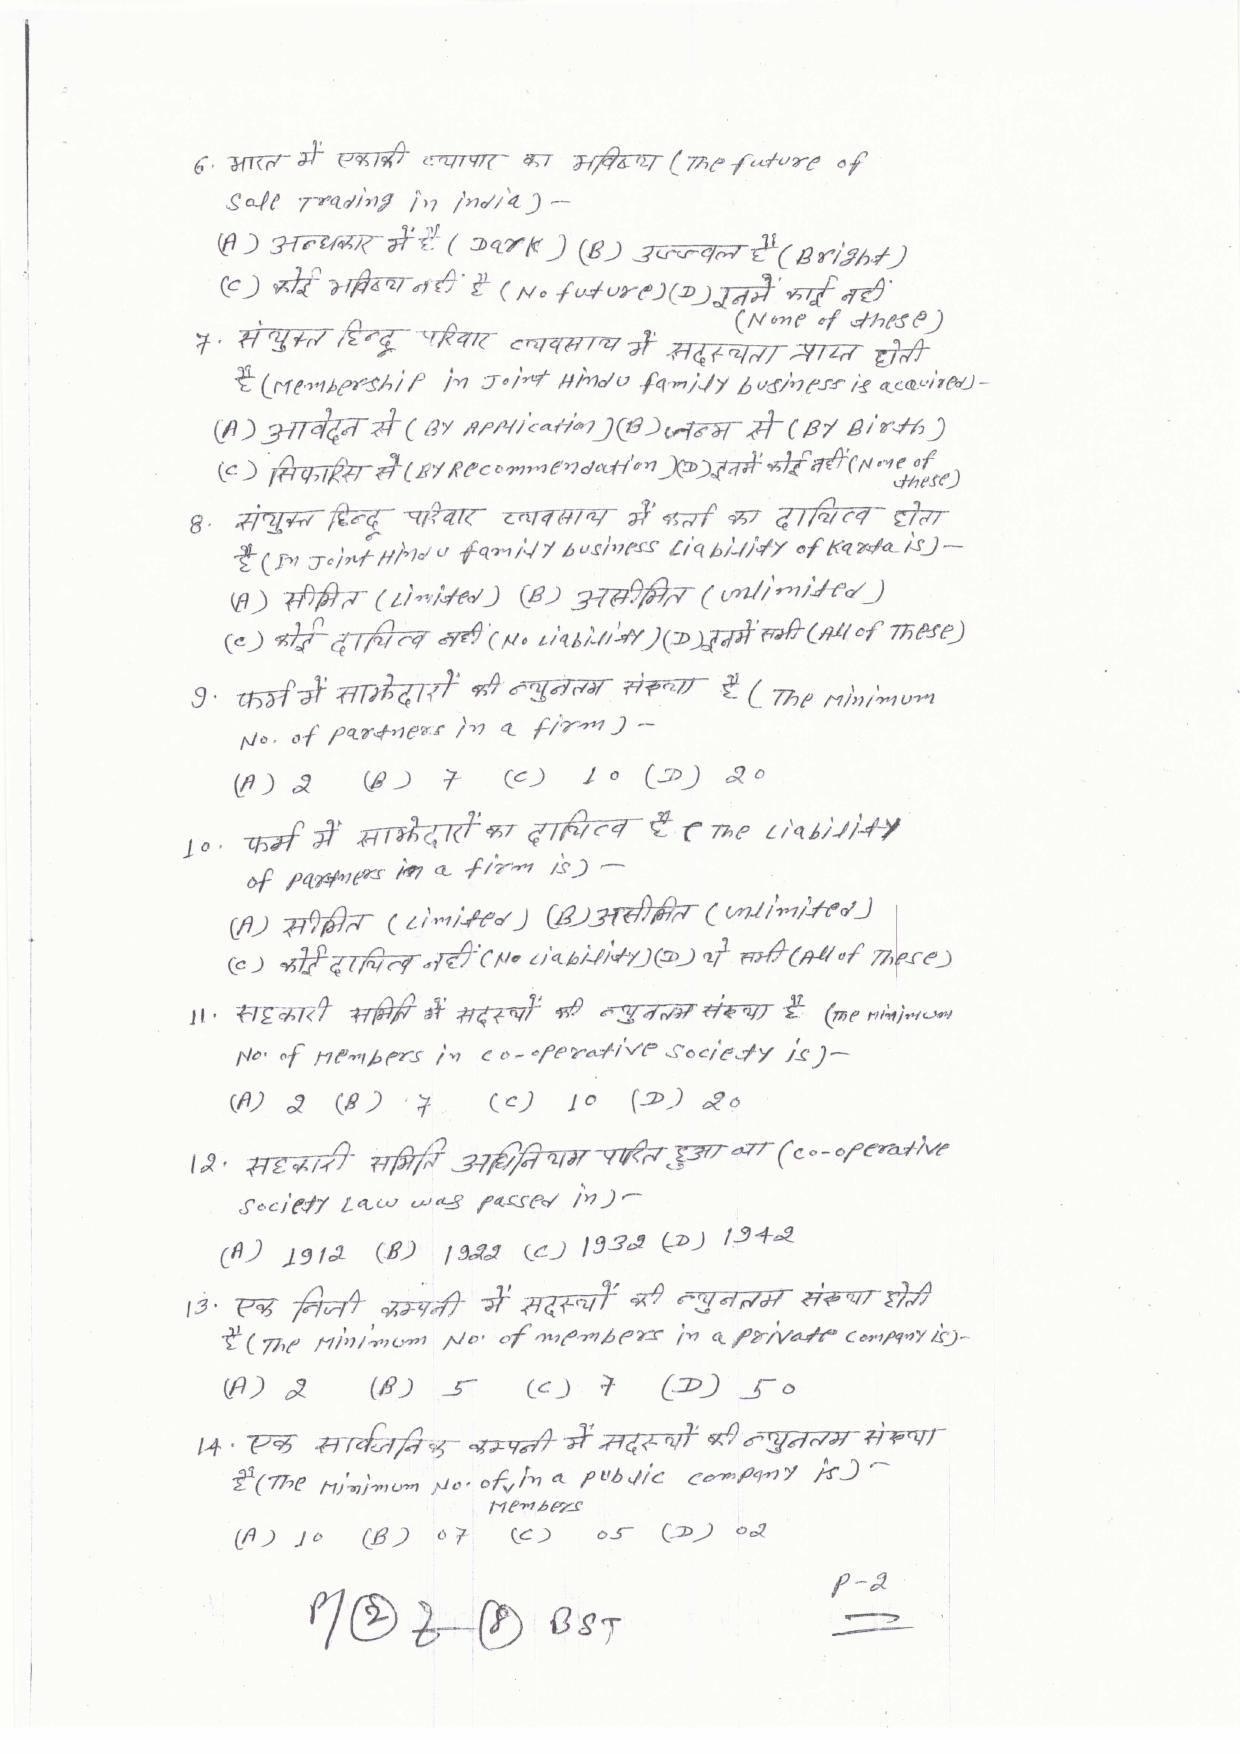 6. भारत में एकाकी व्यापार का भविष्य (The future of
Sole Trading in india) -
(A) अन्धकार में है (Dark) (B) उज्ज्वल है (Bright)
(C) कोई भविष्य नहीं है (No future) (D) इनमें कोई नहीं
(None of these)
7. संयुक्त हिन्दू परिवार व्यवसाय में सदस्यता प्राप्त होती
है (Membership in Joint Hindu family business is acquired) -
(A) आवेदन से (By Application) (B) जन्म से (By Birth)
(C) सिफारिस से (By Recommendation) (D) इनमें कोई नहीं (None of
these)
8. संयुक्त हिन्दू परिवार व्यवसाय में कर्ता का दायित्व होता
है (In Joint Hindu family business Liability of Karta is) -
(A) सीमित (Limited) (B) असीमित (unlimited)
(C) कोई दायित्व नहीं (No Liability) (D) इनमें सभी (All of These)
9. फर्म में साझेदारों की न्युनतम संख्या है (The Minimum
No. of partners in a firm) -
(A) 2 (B) 7 (C) 10 (D) 20
10. फर्म में साझेदारों का दायित्व है (The Liability
of partners in a firm is) -
(A) सीमित (Limited) (B) असीमित (unlimited)
(C) कोई दायित्व नहीं (No Liability) (D) ये सभी (All of These)
11. सहकारी समिति में सदस्यों की न्युनतम संख्या है (The Minimum
No. of Members in co-operative society is) -
(A) 2 (B) 7 (C) 10 (D) 20
12. सहकारी समिति अधिनियम पारित हुआ था (co-operative
society Law was passed in) -
(A) 1912 (B) 1922 (C) 1932 (D) 1942
13. एक निजी कम्पनी में सदस्यों की न्युनतम संख्या होती
है (The Minimum No. of members in a private company is) -
(A) 2 (B) 5 (C) 7 (D) 50
14. एक सार्वजनिक कम्पनी में सदस्यों की न्युनतम संख्या
है (The Minimum No. of Members in a public company is) -
(A) 10 (B) 07 (C) 05 (D) 02
P-2
P/2 8 BST